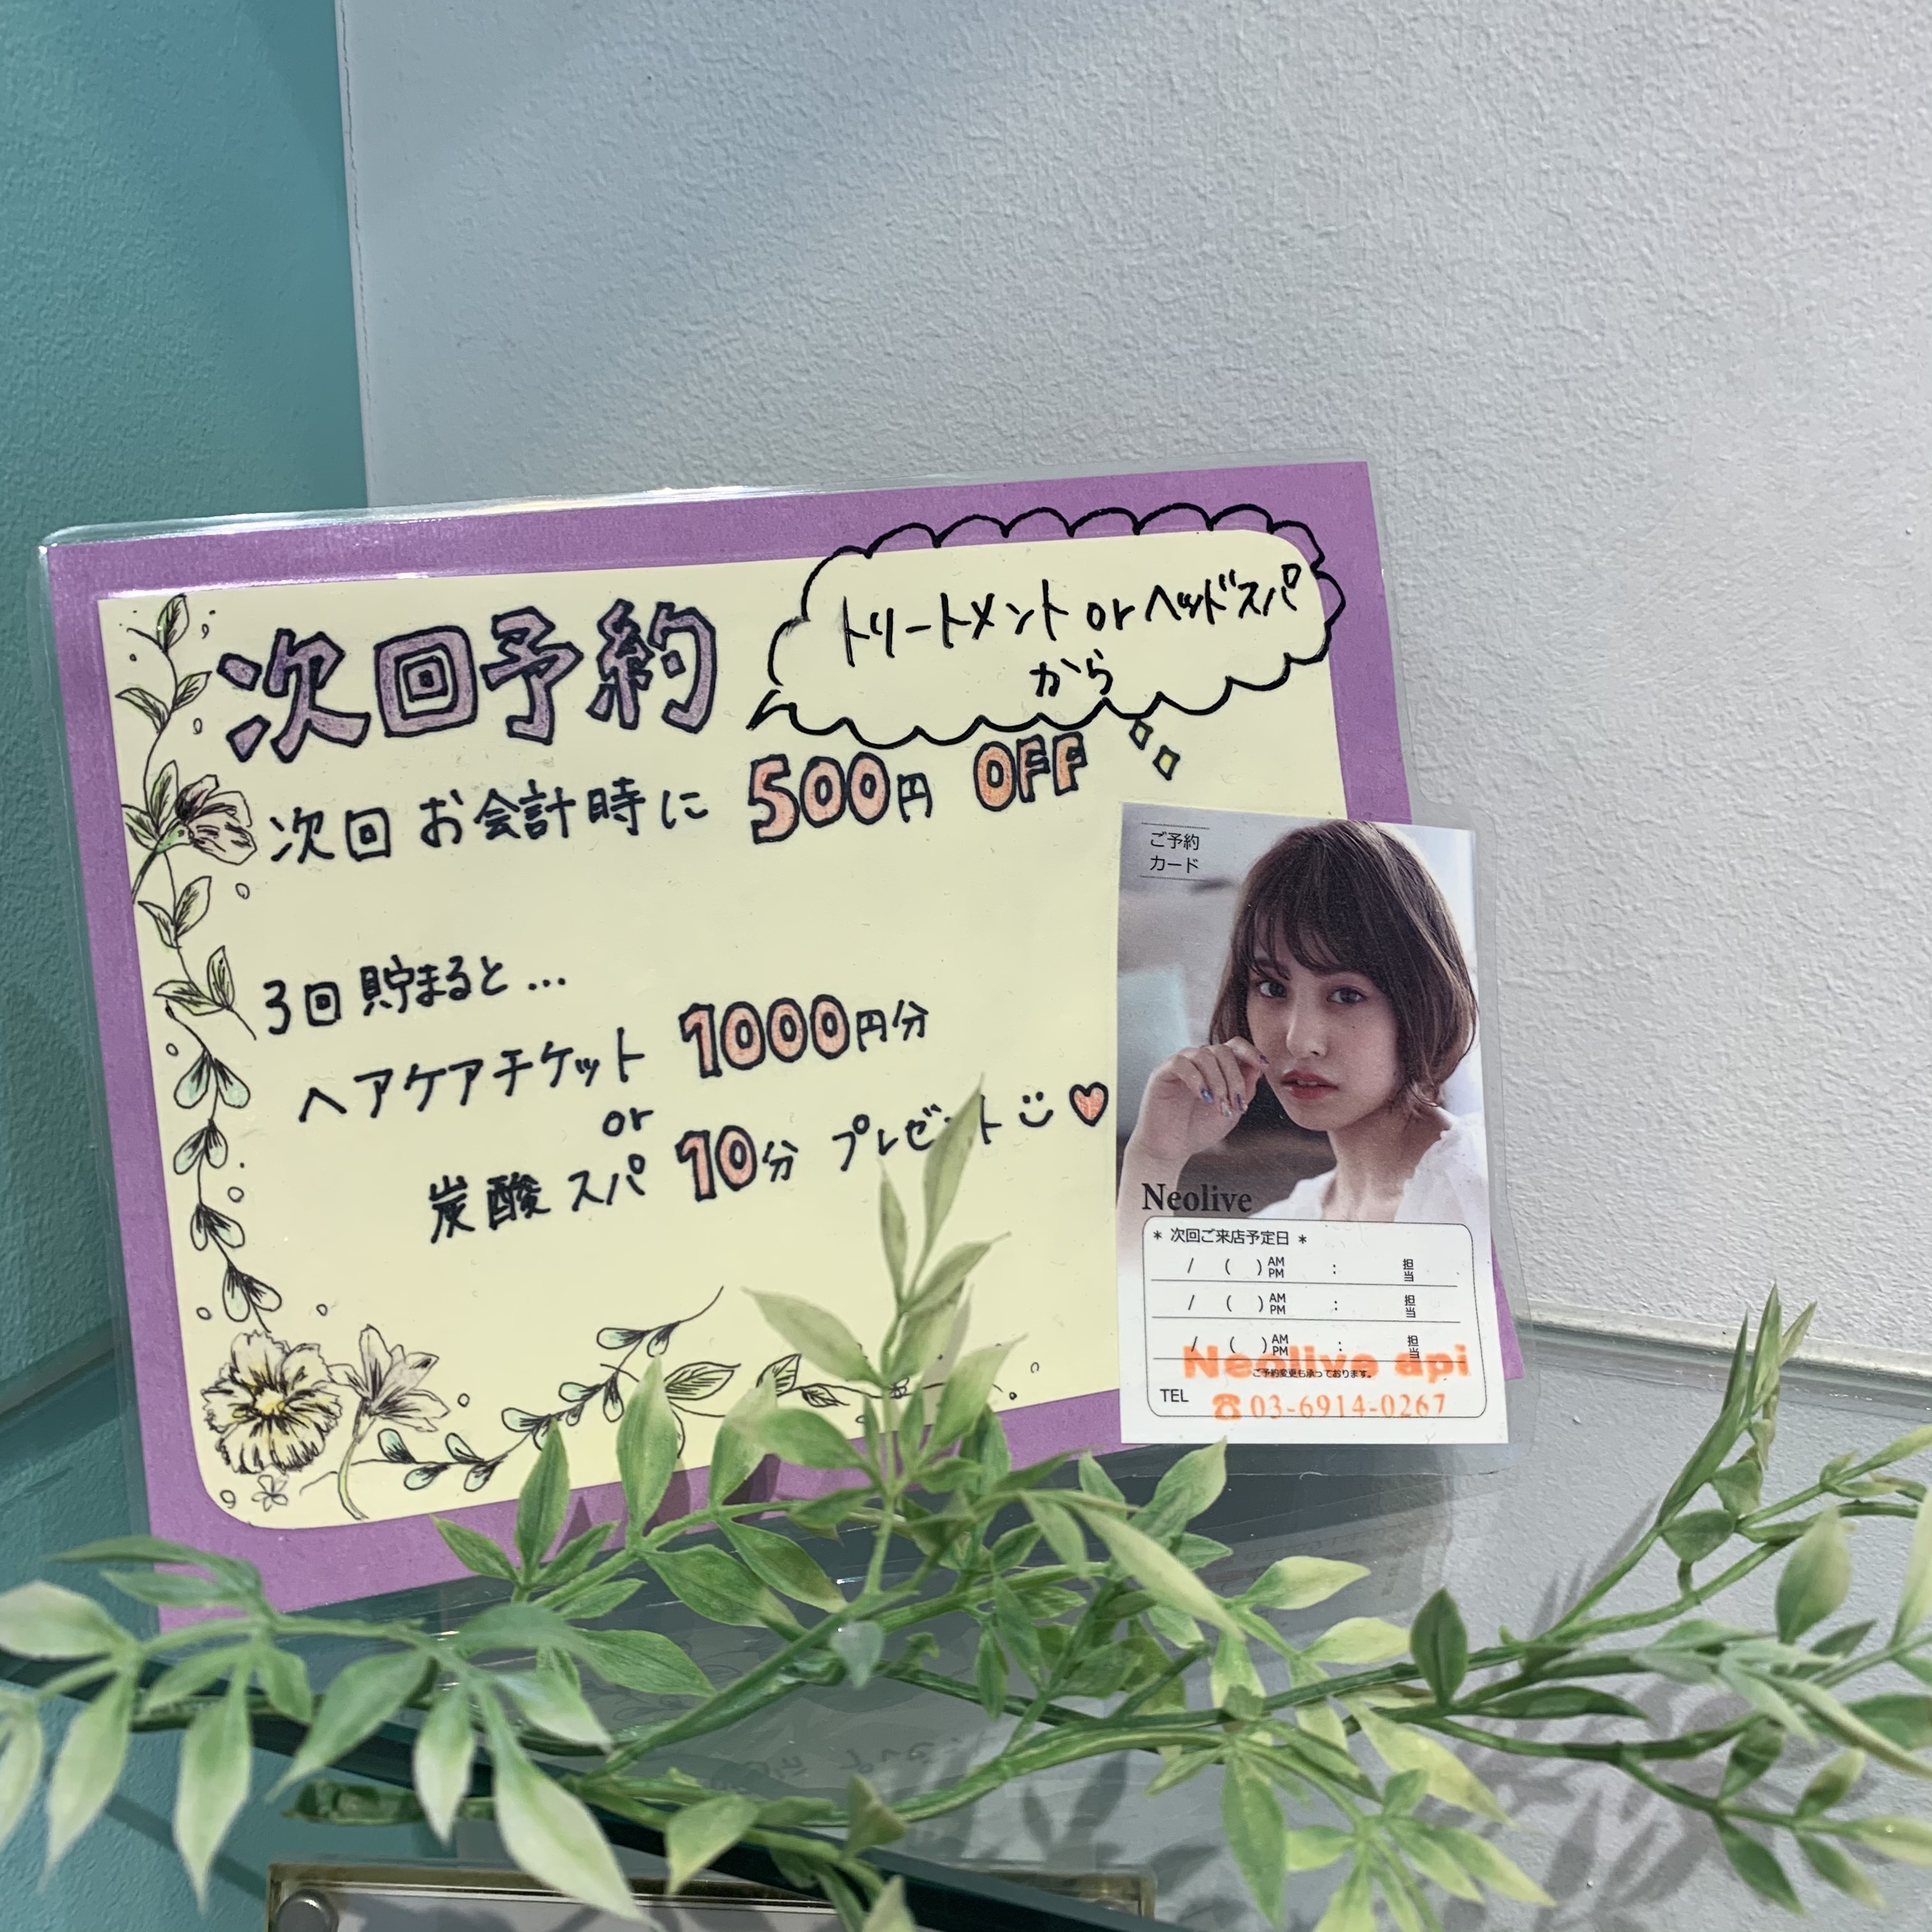 次回予約
トリートメント or ヘッドスパ
から
次回 お会計時に 500円 OFF
3回 貯まると…
ヘアケアチケット 1000円分
or
炭酸 スパ 10分 プレゼント
ご予約
カード
Neolive
* 次回ご来店予定日 *
/ ( ) AM PM : 担当
/ ( ) AM PM : 担当
/ ( ) AM PM : 担当
Neolive api
ご予約変更も承っております。
TEL ☎03-6914-0267